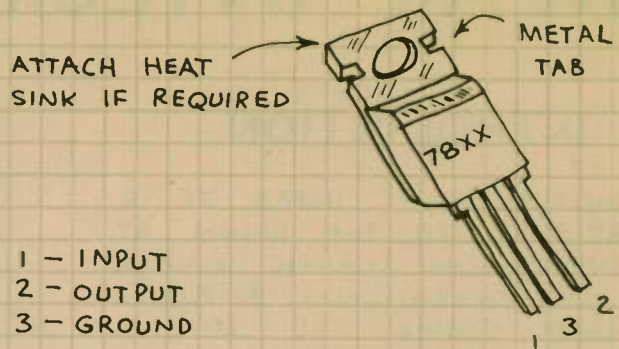 ATTACH HEAT
SINK IF REQUIRED
METAL
TAB
78XX
1 - INPUT
2 - OUTPUT
3 - GROUND
1
3
2